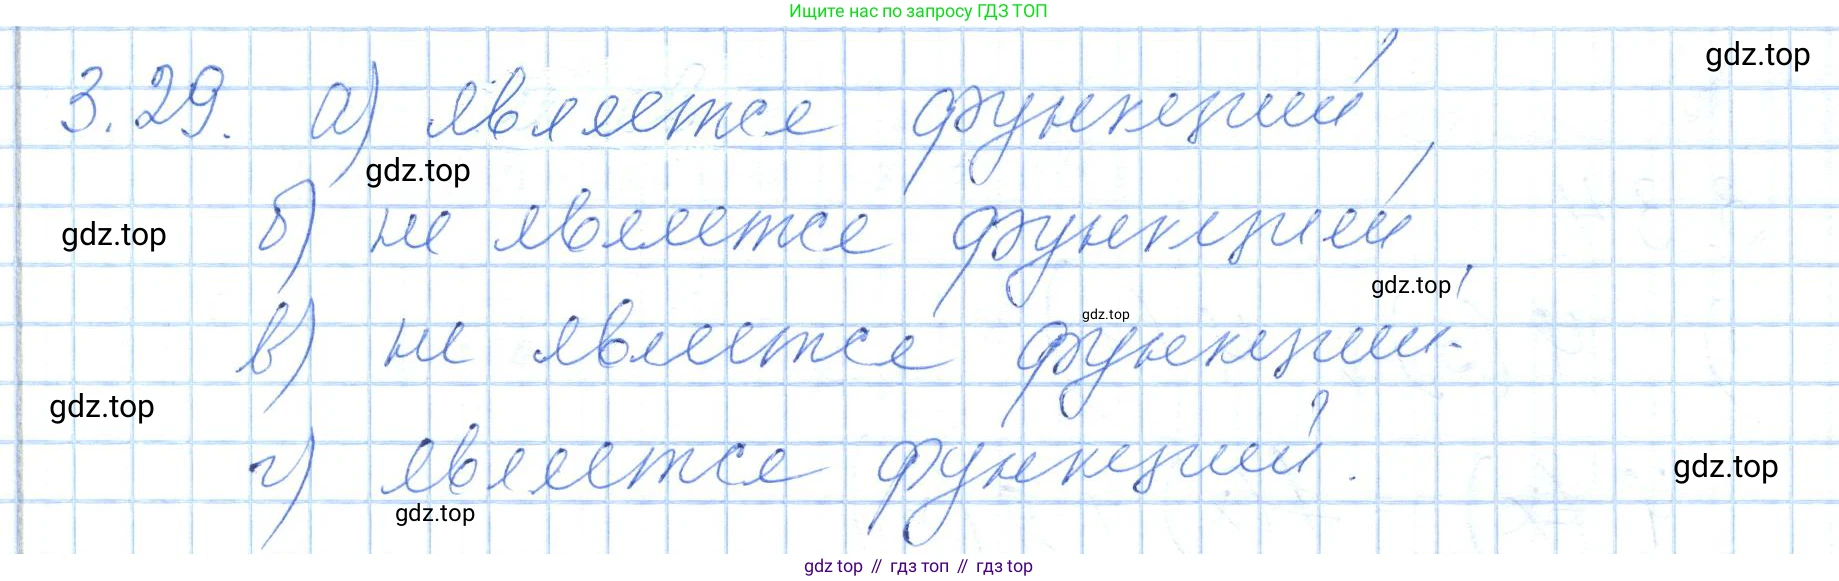 Ищите нас по запросу ГДЗ ТОП
gdz.top
3.29. а) является функцией
gdz.top
б) не является функцией
gdz.top
gdz.top
в) не является функцией.
gdz.top
gdz.top
г) является функцией.
gdz.top
gdz.top
gdz top // гдз топ // гдз top